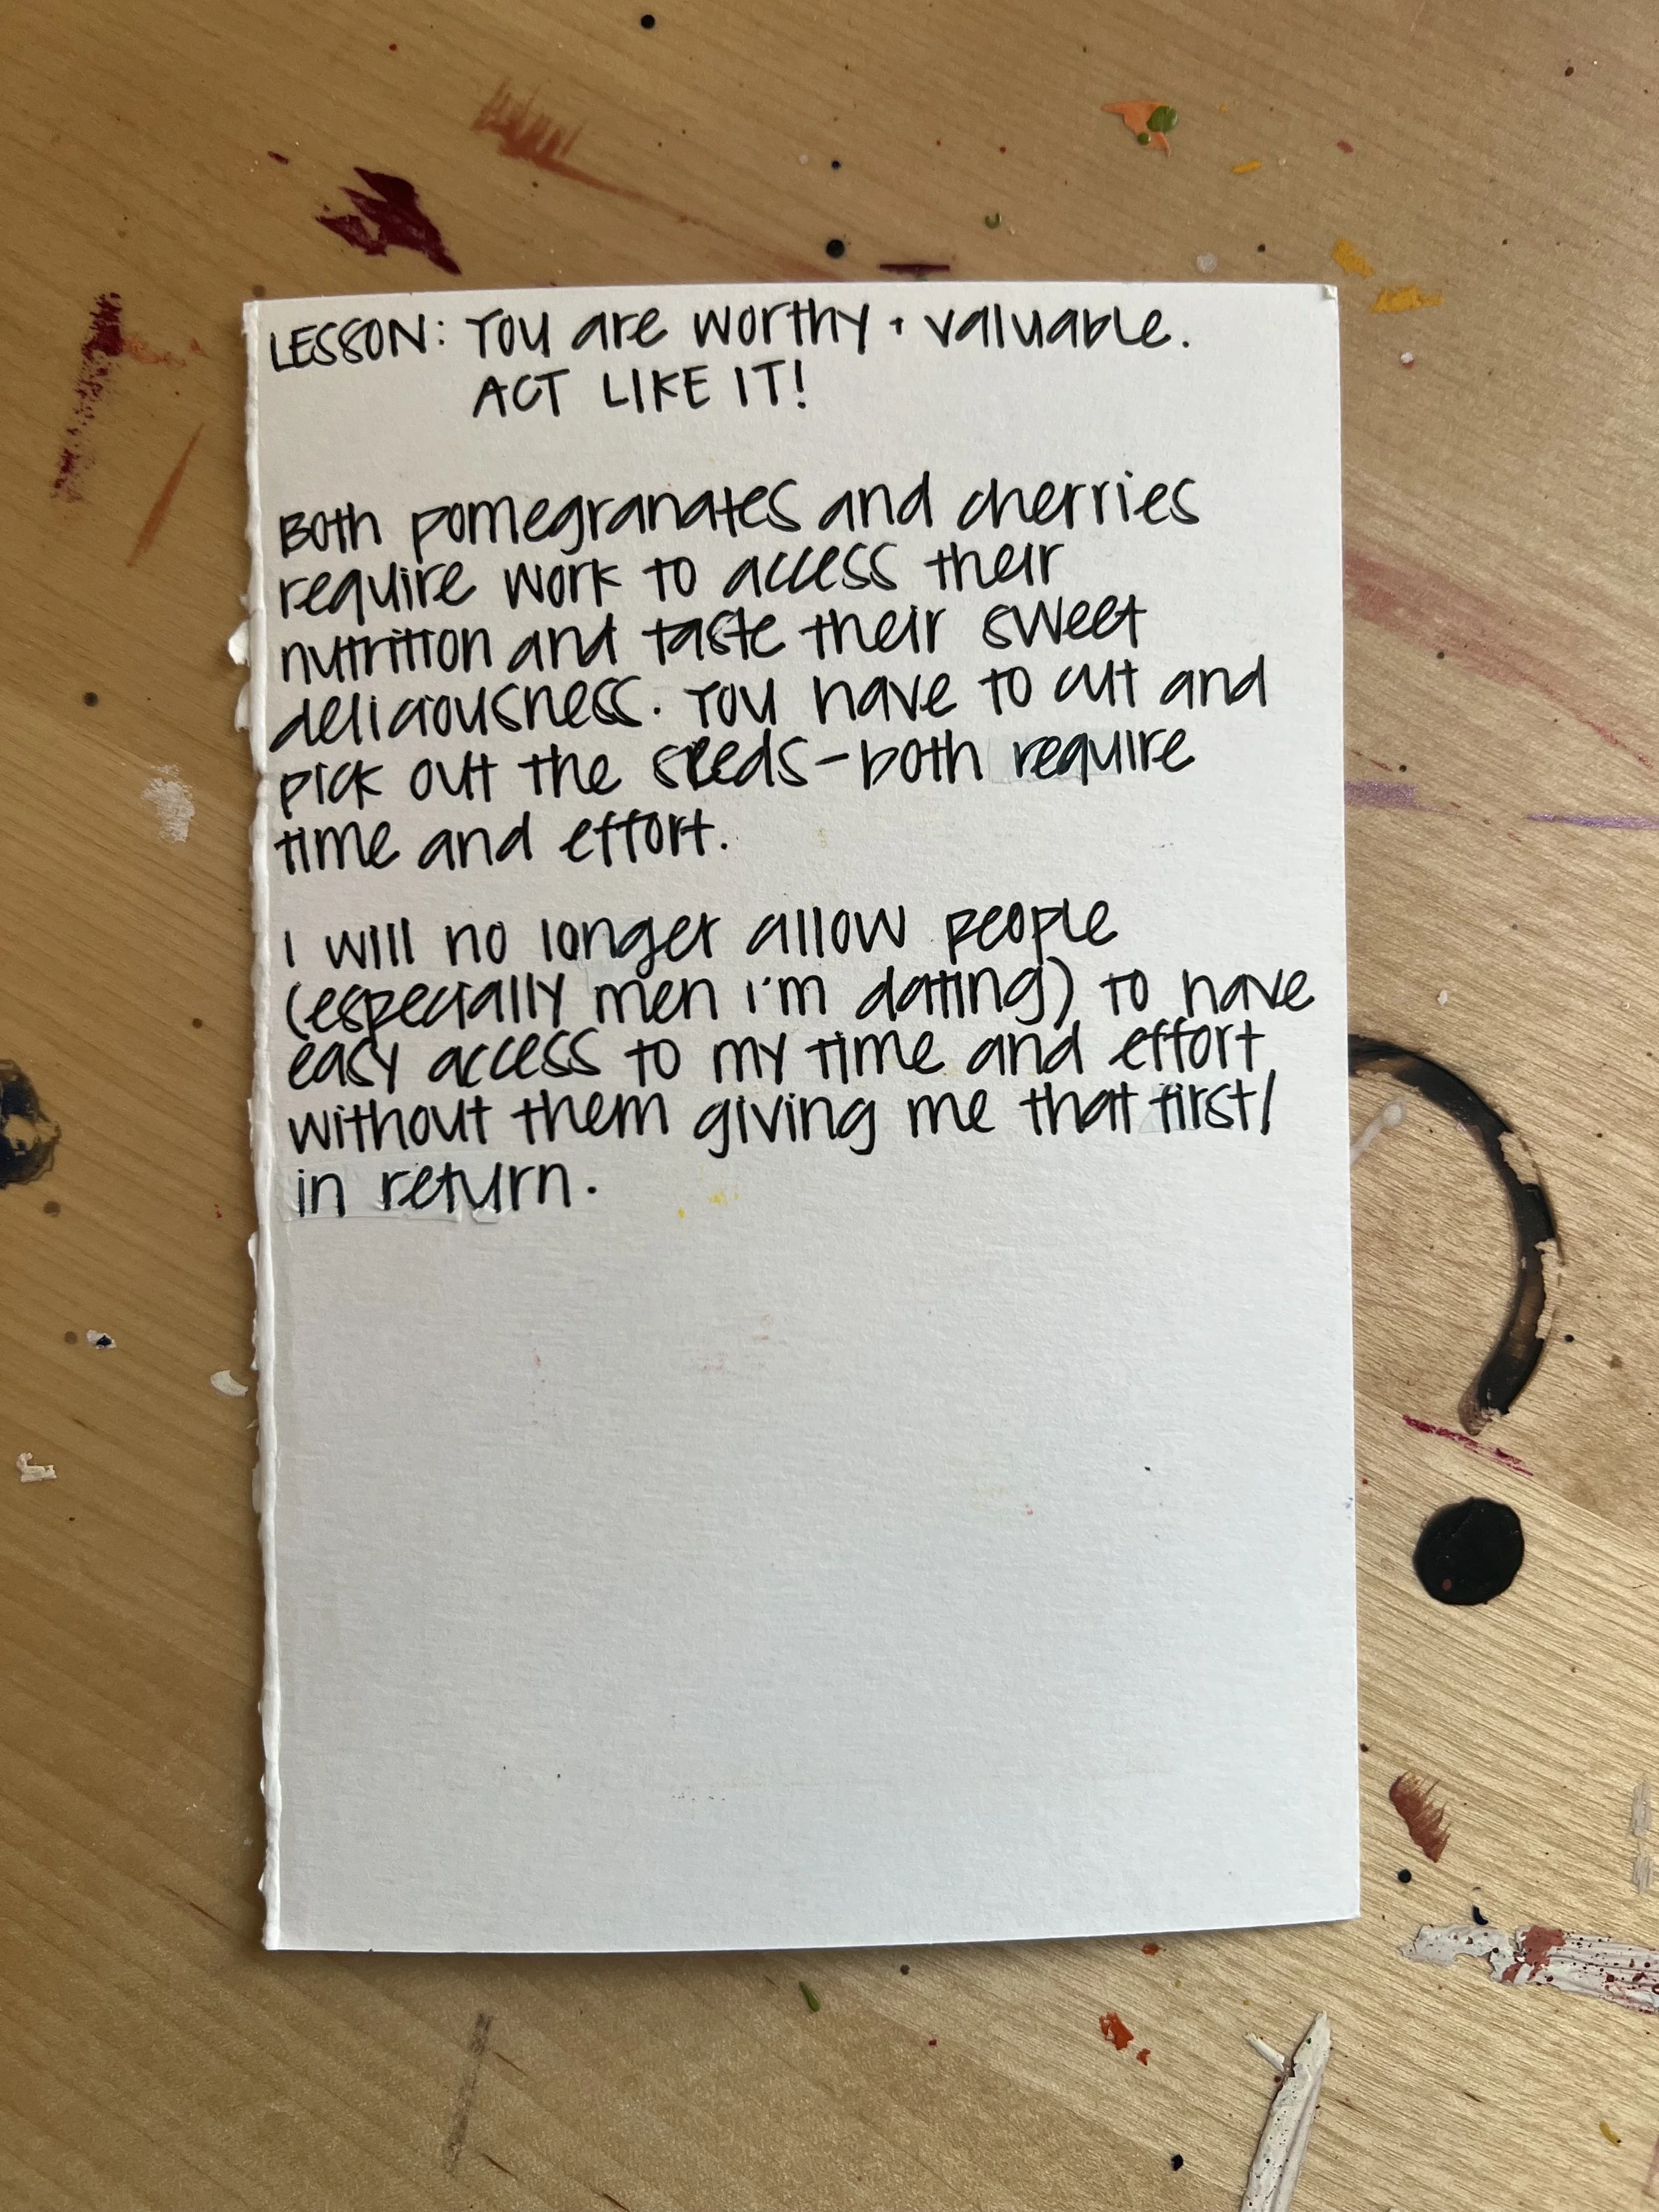 LESSON: You are worthy + valuable.
ACT LIKE IT!
Both pomegranates and cherries
require work to access their
nutrition and taste their sweet
deliciousness. You have to cut and
pick out the seeds - both require
time and effort.
I will no longer allow people
(especially men i'm dating) to have
easy access to my time and effort
without them giving me that first/
in return.